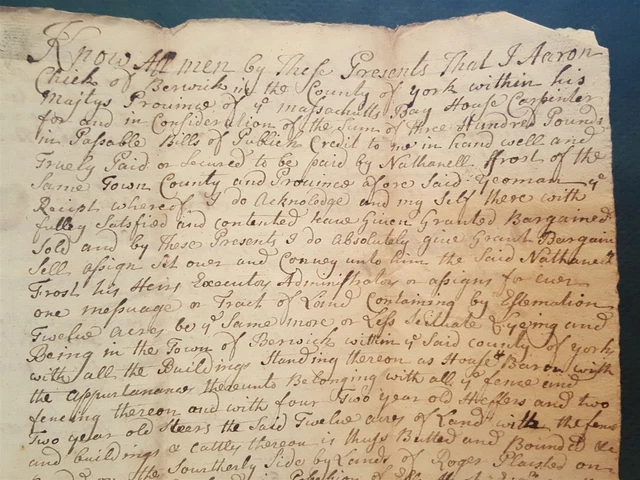 Know All men by These Presents That I Aaron
Chick of Berwick in the County of york within his
Majtys Prouince of ye Massachutts Bay House Carpinter
for and in Consideration of the Sum of three Hundred Pounds
in Passable Bills of Publick Credit to me in hand well and
Truely Paid or Secured to be paid by Nathanell ffrost of the
Same Town County and Prouince afore Said Yeoman ye
Reciept whereof I do Acknoledge and my Self there with
fulley Satsfied and contented haue Giuen Granted Bargained
Sold and by These Presents I do Absolutely giue Grant Bargain
Sell assign Set ouer and Conuey unto him the Said Nathanell
Frost his Heirs Executors Administrators or assigns for euer
one messuage or Tract of Land Containing by Estemation
Twelue acres be ye Same more or Less Scituate Lyeing and
Being in the Town of Berwick within ye Said county of york
with all the Buildings Standing thereon as House & Baron with
the appurtanances thereunto Belonging with all ye fence and
fencing thereon and with four Two year old Heffers and two
Two year old Stears the Said Twelue acres of Land with the fence
and buildings & cattly thereon is thus Butted and Bounded &c
on the Sourtherly Side by Lands of Roger Plaisted on